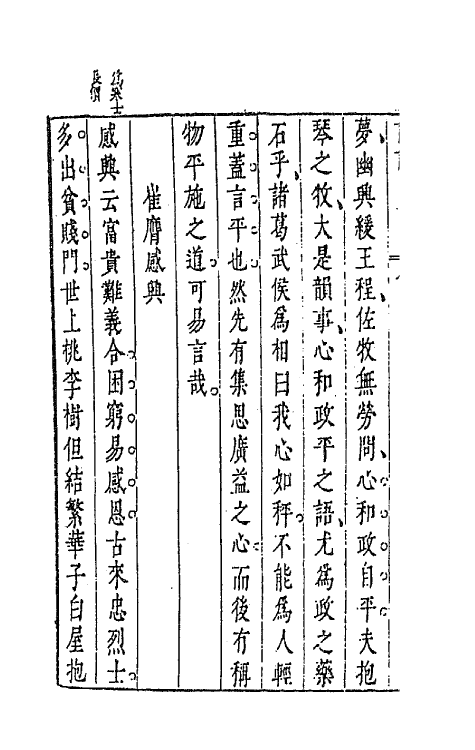 夢幽興緩王程佐牧無勞問心和政自平夫抱
琴之牧大是韻事心和政平之語尤為政之藥
石乎諸葛武侯為相曰我心如秤不能為人輕
重蓋言平也然先有集思廣益之心而後有稱
物平施之道可易言哉
崔膺感興
感興云富貴難義合困窮易感恩古來忠烈士
多出貧賤門世上桃李樹但結繁華子白屋抱
為寒士
長價